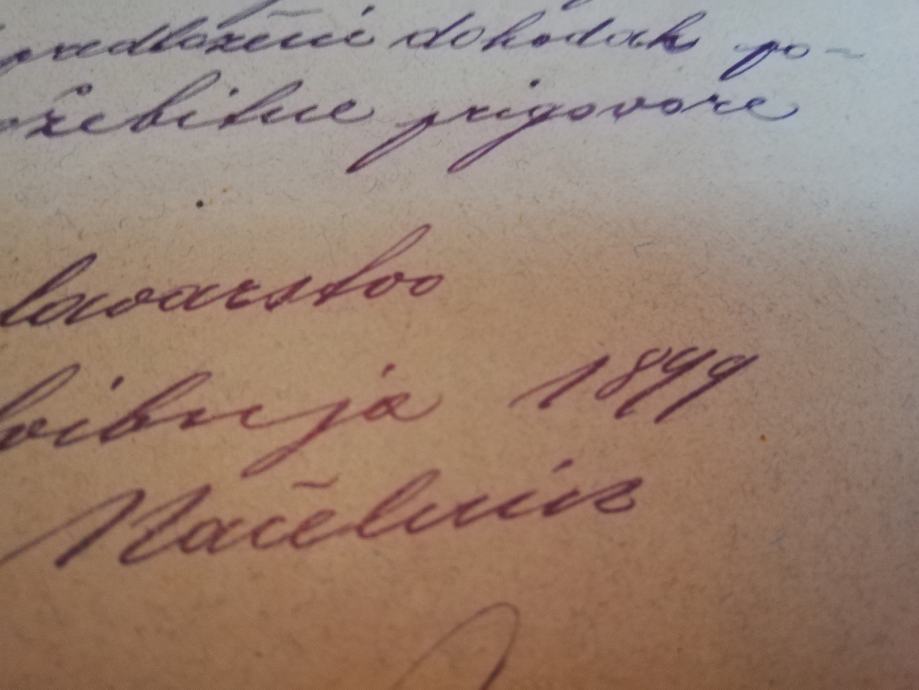 predloženi dohodak po-
ožebitne prigovore
lavarstvo
vibnja 1899
Načelnik